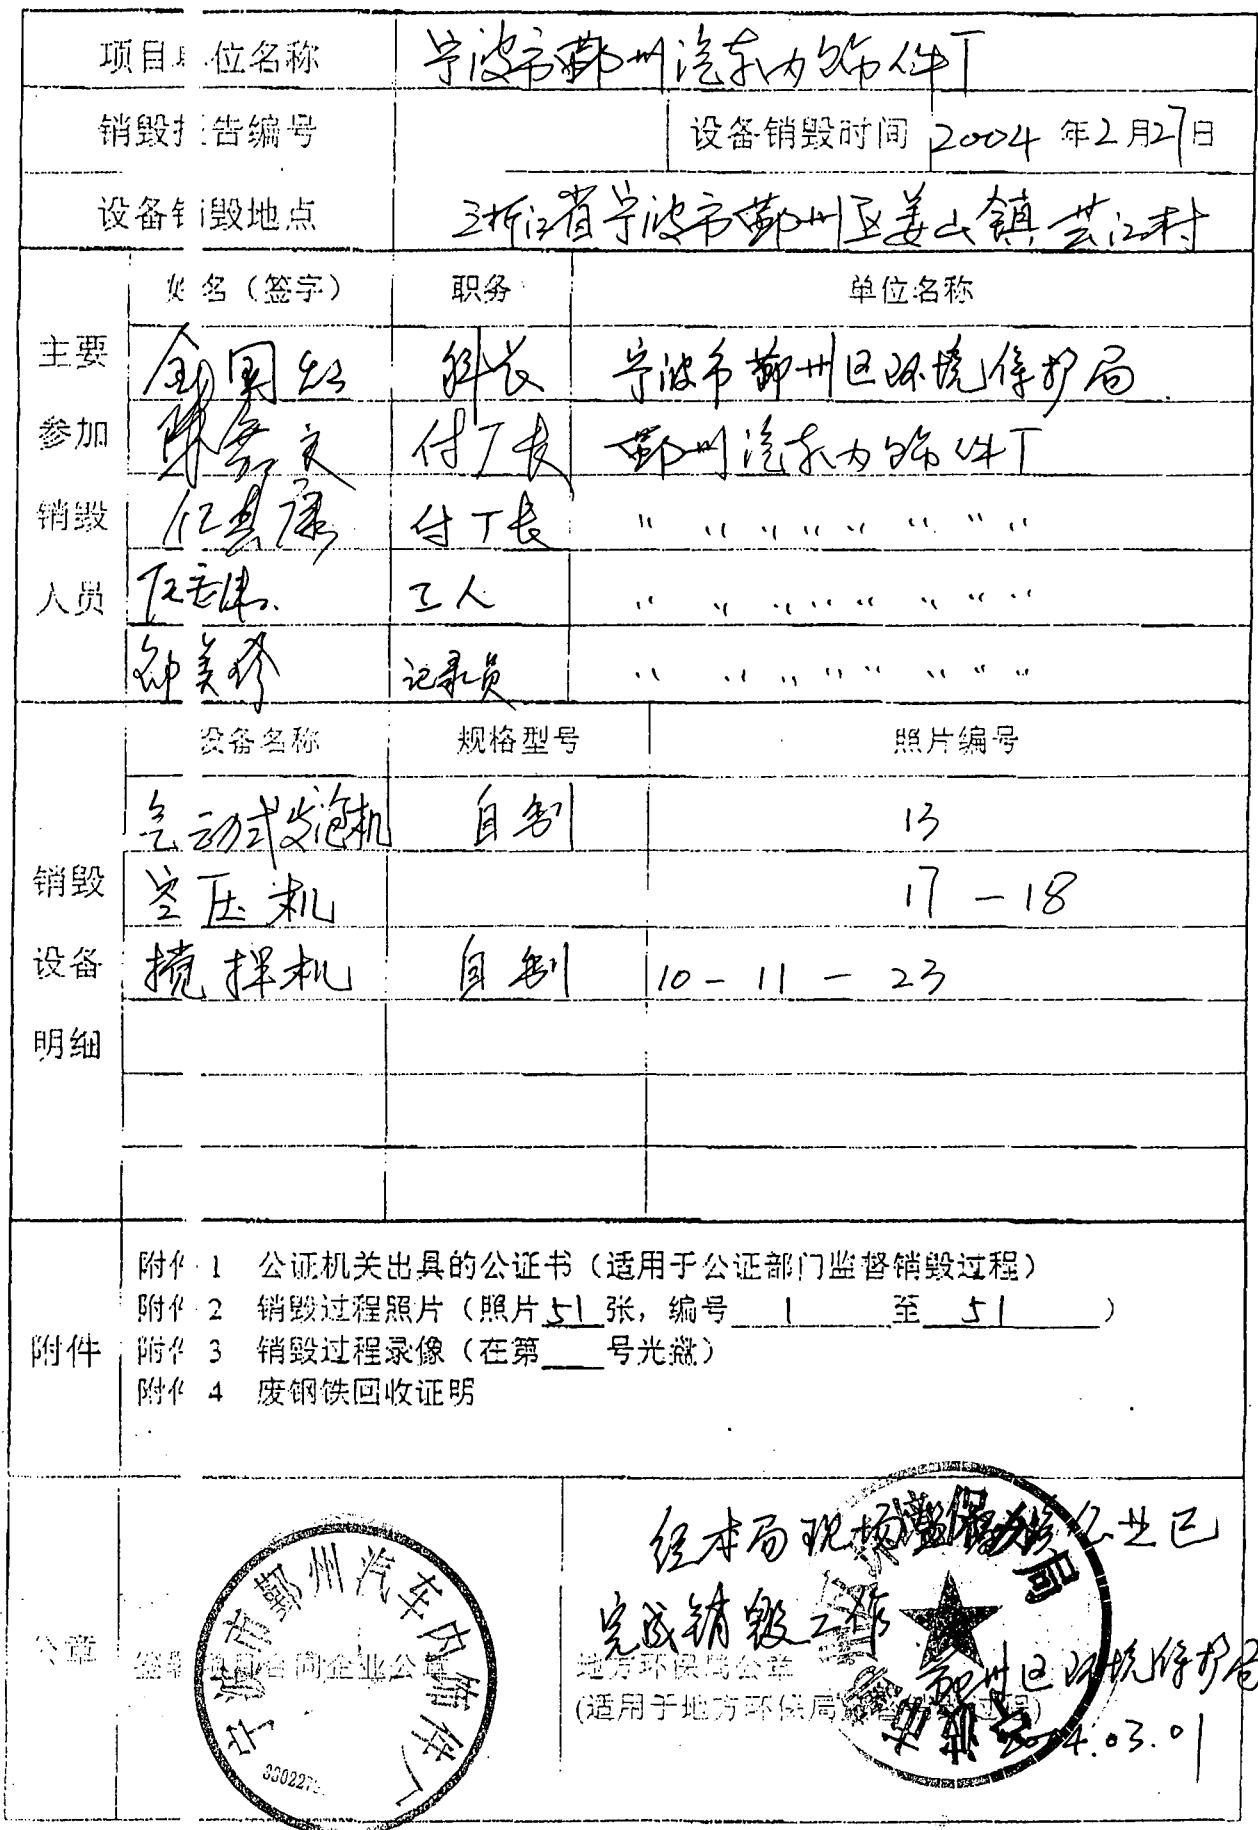 项目单位名称 宁波市鄞州汽车内饰件厂
销毁报告编号 设备销毁时间 2004 年2月27日
设备销毁地点 浙江省宁波市鄞州区姜山镇芸江村
姓名（签字） 职务 单位名称
主要 参加 销毁 人员
国 科长 宁波市鄞州区环境保护局
陈 文 付厂长 鄞州汽车内饰件厂
仁其康 付厂长 〃 〃 〃 〃 〃 〃 〃 〃
工人 〃 〃 〃 〃 〃 〃 〃 〃
邰美 记录员 〃 〃 〃 〃 〃 〃 〃 〃
设备名称 规格型号 照片编号
销毁 设备 明细
气动式发泡机 自制 13
空压机 17－18
搅拌机 自制 10－11－23
附件
附件 1 公证机关出具的公证书（适用于公证部门监督销毁过程）
附件 2 销毁过程照片（照片51张，编号 1 至 51 ）
附件 3 销毁过程录像（在第 号光盘）
附件 4 废钢铁回收证明
公章
合同企业公章
宁波市鄞州汽车内饰件厂
330227
经本局现场监督 企业已
完成销毁工作
地方环保局公章
(适用于地方环保局 过程)
鄞州区环境保护局
2004.03.01